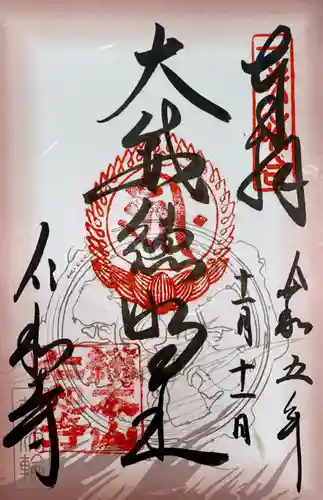 奉拝
令和五年
十一月十一日
大威徳明王
仁和寺